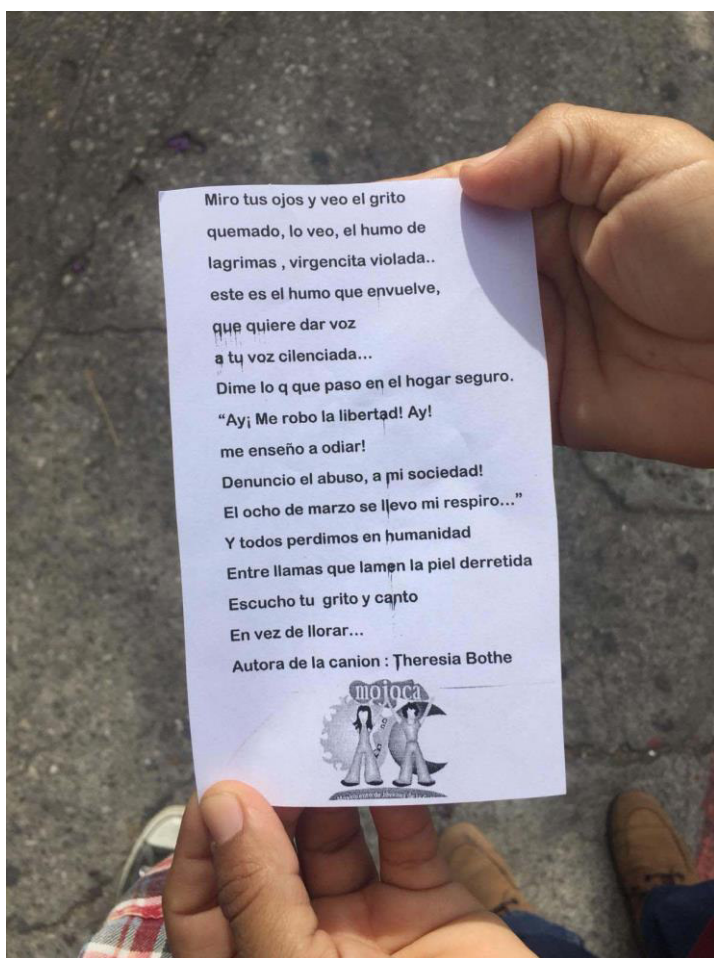 Miro tus ojos y veo el grito
quemado, lo veo, el humo de
lagrimas , virgencita violada..
este es el humo que envuelve,
que quiere dar voz
a tu voz cilenciada...
Dime lo q que paso en el hogar seguro.
“Ay¡ Me robo la libertad! Ay!
me enseño a odiar!
Denuncio el abuso, a mi sociedad!
El ocho de marzo se llevo mi respiro...”
Y todos perdimos en humanidad
Entre llamas que lamen la piel derretida
Escucho tu grito y canto
En vez de llorar...
Autora de la canion : Theresia Bothe
mojoca